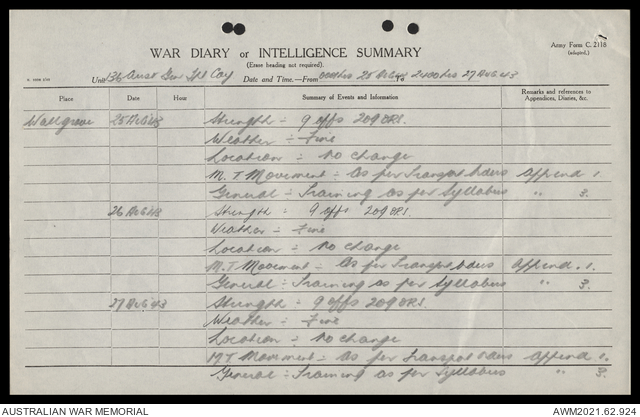 WAR DIARY or INTELLIGENCE SUMMARY
(Erase heading not required).
Army Form C. 2118
(adapted.)
Unit 136 Aust Gen Tpt Coy Date and Time.—From 0001 hrs 25 AUG 43 2400 hrs 27 AUG 43
Place Date Hour Summary of Events and Information Remarks and references to Appendices, Diaries, &c.
Wallgrove 25 AUG 43 Strength :- 9 offs 209 ORS.
Weather :- Fine
Location :- No change
M.T Movement :- As per Transport Orders Append 1.
General :- Training as per Syllabus " 3.
26 AUG 43 Strength :- 9 offs 209 ORS.
Weather :- Fine
Location :- No change
M.T Movement :- As per Transport Orders Append. 1.
General :- Training as per Syllabus " 3.
27 AUG 43 Strength :- 9 offs 209 ORS.
Weather :- Fine
Location :- No change
MT Movement :- As per Transport Orders Append 1.
General :- Training as per Syllabus " 3.
AUSTRALIAN WAR MEMORIAL
AWM2021.62.924